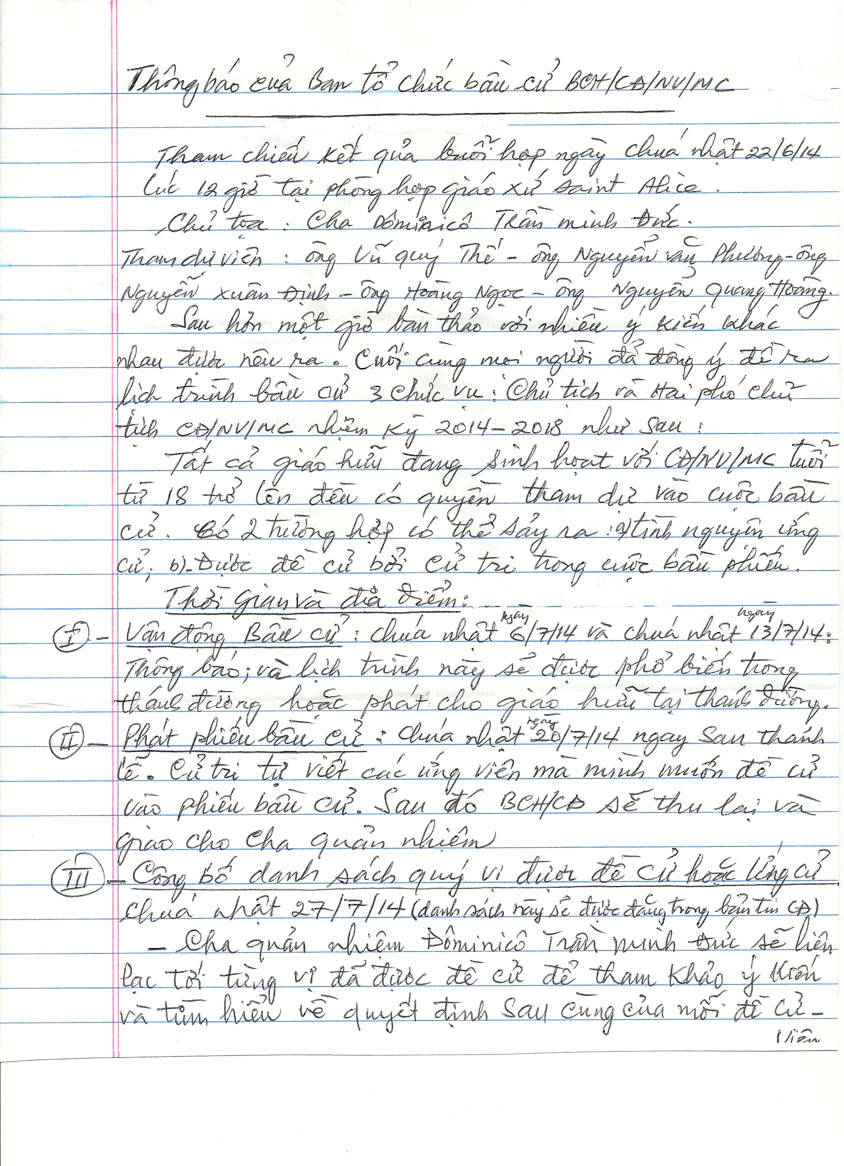 Thông báo của Ban tổ chức bầu cử BCH/CĐ/NV/MC
Tham chiếu kết quả buổi họp ngày chuá nhật 22/6/14
lúc 12 giờ tại phòng họp giáo xứ Saint Alice.
Chủ tọa : Cha Đôminicô Trần minh Đức.
Tham dự viên : ông Vũ quý Thế - ông Nguyễn văn Phương - ông
Nguyễn Xuân Định - ông Hoàng Ngọc - ông Nguyễn Quang Hoàng.
Sau hơn một giờ bàn thảo với nhiều ý kiến khác
nhau được nêu ra. Cuối cùng mọi người đã đồng ý đề ra
lịch trình bầu cử 3 chức vụ : Chủ tịch và Hai phó chủ
tịch CĐ/NV/MC nhiệm kỳ 2014-2018 như sau :
Tất cả giáo hữu đang sinh hoạt với CĐ/NV/MC tuổi
từ 18 trở lên đều có quyền tham dự vào cuộc bầu
cử. Có 2 trường hợp có thể sảy ra : a) tình nguyện ứng
cử; b)-Được đề cử bởi cử tri trong cuộc bầu phiếu.
Thời Gian và địa điểm:
I - Vận động Bầu cử : chuá nhật ngày 6/7/14 và chuá nhật ngày 13/7/14:
Thông báo; và lịch trình này sẽ được phổ biến trong
thánh đường hoặc phát cho giáo hữu tại thánh đường.
II - Phát phiếu bầu cử : chuá nhật ngày 20/7/14 ngay sau thánh
lễ. Cử tri tự viết các ứng viên mà mình muốn đề cử
vào phiếu bầu cử. Sau đó BCH/CĐ sẽ thu lại và
giao cho cha quản nhiệm
III - Công bố danh sách quý vị được đề cử hoặc ứng cử
chuá nhật 27/7/14 (danh sách này sẽ được đăng trong bản tin CĐ)
- Cha quản nhiệm Đôminicô Trần minh Đức sẽ liên
lạc tới từng vị đã được đề cử để tham khảo ý kiến
và tìm hiểu về quyết định sau cùng của mỗi đề cử -
viên